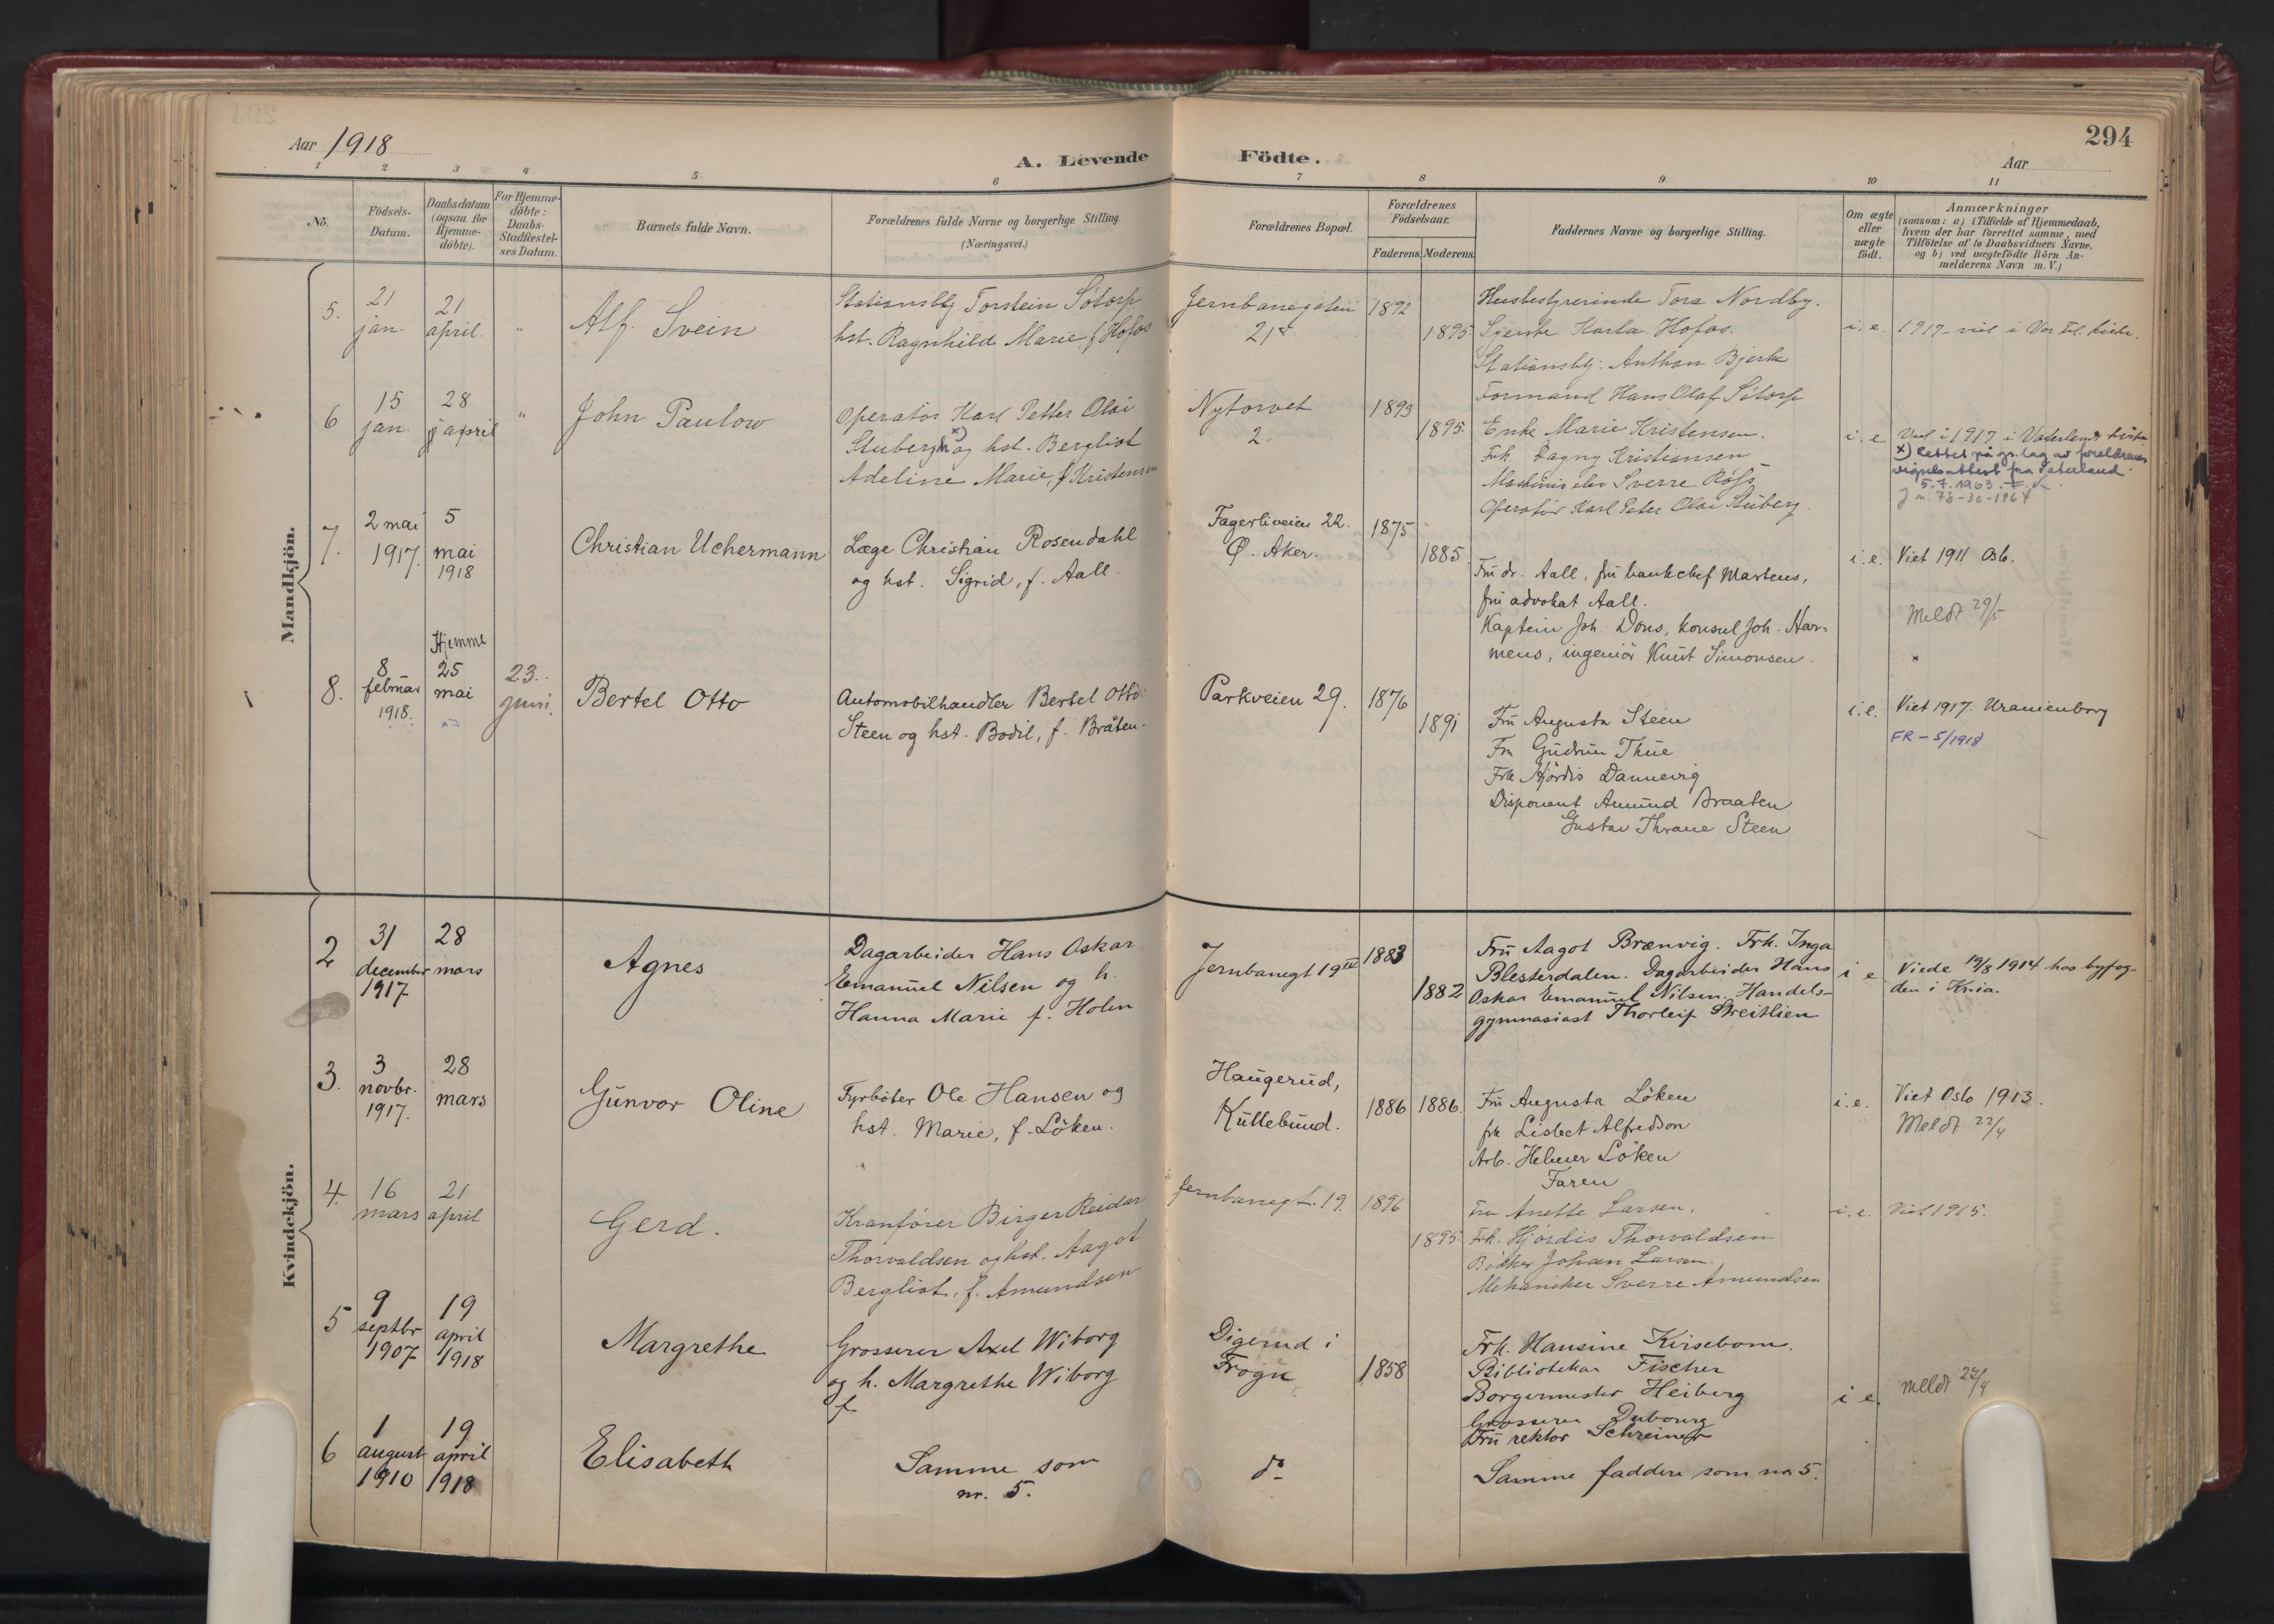 294
Aar 1918
A. Levende Födte.
Aar
1 2 3 4 5 6 7 8 9 10 11
No.
Födsels-Datum.
Daabsdatum (ogsaa for Hjemme-döbte).
For Hjemme-döbte: Daabs-Stadfæstel-ses Datum.
Barnets fulde Navn.
Forældrenes fulde Navne og borgerlige Stilling.
(Næringsvei.)
Forældrenes Bopæl.
Forældrenes Födselsaar.
Faderens. Moderens.
Faddernes Navne og borgerlige Stilling.
Om ægte eller uægte födt.
Anmærkninger
(saasom: a) i Tilfælde af Hjemmedaab,
hvem der har forrettet samme, med
Tilföielse af to Daabsvidners Navne,
og b) ved uægtefödte Börn An-
melderens Navn m. V.)
Mandkjön.
5.
21 jan.
21 april.
"
Alf Svein
Stationsbtj Torstein Sötorp
hst. Ragnhild Marie, f Hofos
Jernbanegaten
21
1892
1895
Husbestyrerinde Tora Nordby.
Karla Hofos.
Stationsbtj: Anthon Bjerke
Formand Hans Olaf Sötorp
i. e.
1917
6
15 jan.
28 april
"
John Paulow
Operatör Karl Petter Olai
Stuberg x) og hst. Bergliot
Adeline Marie, f Kristensen
Nytorvet
2.
1893
1895.
Enke Marie Kristensen.
Frk. Dagny Kristiansen
Sverre Röss
Operatör Karl Peter Olai Stuberg.
i. e
Viet i 1917 i Vaterlands kirke
x) Rettet på gr.lag av foreldrenes
vigselsattest fra Vaterland.
5.7.1963.
7.
2 mai
1917.
5 mai
1918
Christian Uchermann
Læge Christian Rosendahl
og hst. Sigrid, f. Aall.
Fagerliveien 22.
Ø. Aker.
1875
1885.
Fru dr. Aall, fru bankchef Martens,
fru advokat Aall.
Kaptein Joh. Dons, konsul Joh. Har-
mens, ingeniör Knut Simonsen.
i. e.
Viet 1911 Osb.
Meldt 29/5
8.
8 februar
1918.
Hjemme
25 mai
23. juni.
Bertel Otto
Automobilhandler Bertel Otto
Steen og hst. Bodil, f. Bråten.
Parkveien 29.
1876
1891
Fru Augusta Steen
Fru Gudrun Thue
Frk Hjördis Dannevig
Disponent Amund Braaten
Gustav Thrane Steen
i. e.
Viet 1917. Uranienborg
FR - 5/1918
Kvindekjön.
2
31 december
1917
28 mars
Agnes
Dagarbeider Hans Oskar
Emanuel Nilsen og h.
Hanna Marie f. Holm
Jernbanegt 19 IV
1883
1882
Fru Aagot Brænvig. Frk. Inga
Blesterdalen. Dagarbeider Hans
Oskar Emanuel Nilsen. Handels-
gymnasiast Thorleif Streitlien
i e
Viede 19/8 1914 hos byfog-
den i Kria.
3.
3 novbr.
1917.
28 mars
Gunvor Oline
Fyrböter Ole Hansen og
hst. Marie, f. Löken.
Haugerud,
Kullebund.
1886
1886.
Fru Augusta Löken
frk Lisbet Alfredson
Arb. Helmer Löken
Faren
i. e.
Viet Oslo 1913.
Meldt 22/4
4.
16 mars
21 april
Gerd.
Kranförer Birger Reidar
Thorvaldsen og hst. Aagot
Bergliot, f. Amundsen
Jernbanegt. 19.
1896
1895.
Fru Anette Larsen.
Frk. Hjördis Thorvaldsen
Bödker Johan Larsen.
Mekaniker Sverre Amundsen
i. e.
Viet 1915.
5
9 septbr
1907
19 april
1918
Margrethe
Grosserer Axel Wiborg
og h. Margrethe Wiborg
f.
Digerud i
Frogn
1858
Frk. Hansine Kirsebom.
Bibliotekar Fischer
Borgermester Heiberg
Grosserer Dubourg
Fru rektor Schreiner
i e.
meldt 22/4
6
1 august
1910
19 april
1918
Elisabeth
Samme som
nr. 5.
do
Samme faddere som no 5.